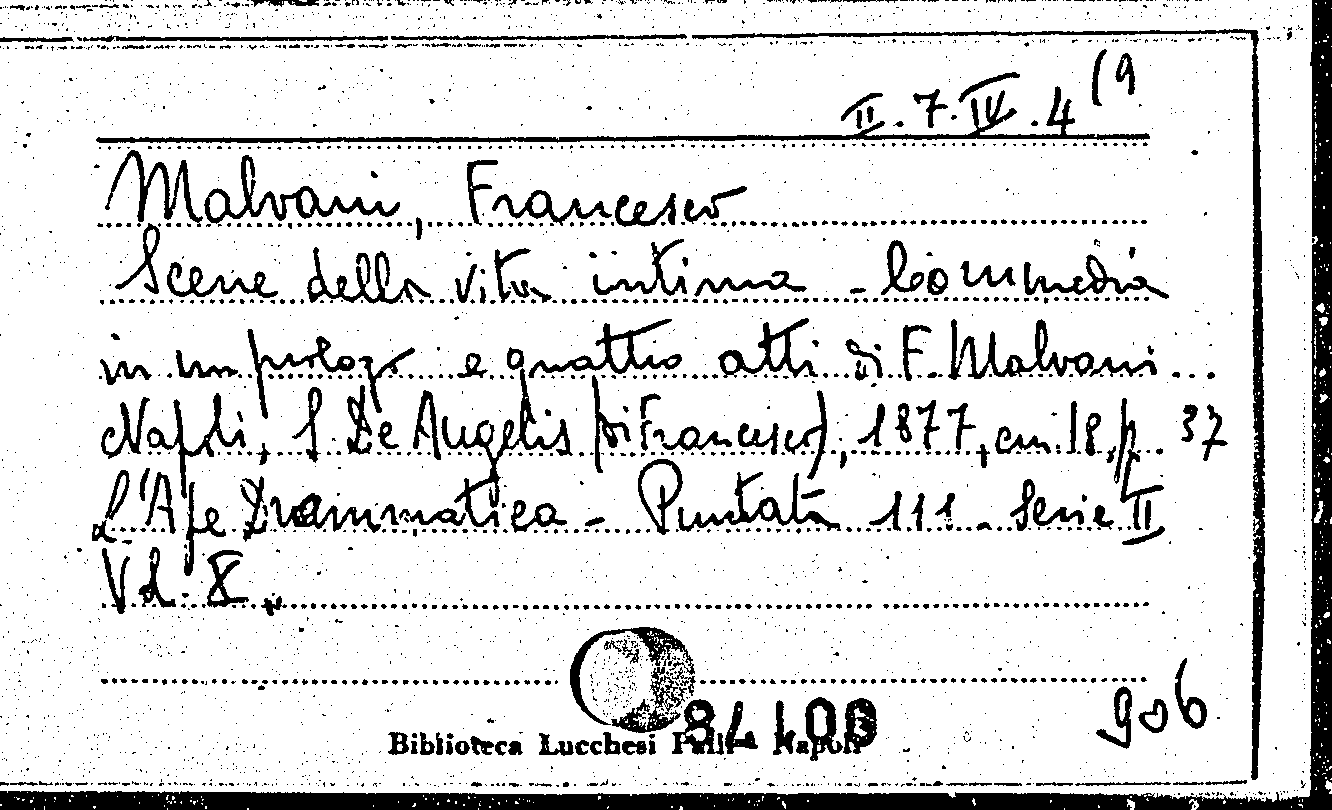 II.7.IV.4(9
Malvani, Francesco
Scene della vita intima - Commedia
in un prologo e quattro atti di F. Malvani...
Napoli, S. De Angelis (di Francesco), 1877, cm.18, p. 37
L'Ape Drammatica - Puntata 111 - Serie II
Vol. X
906
Biblioteca Lucchesi Palli - Napoli